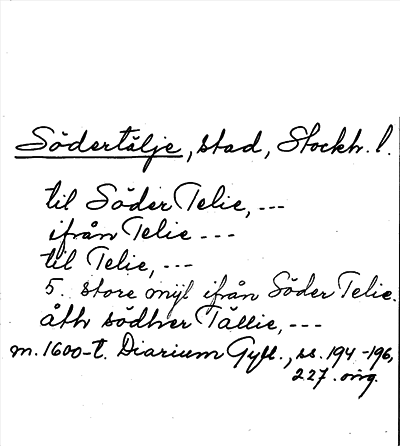 Södertälje, stad, Stockh. l.
til Söder Telie, ---
ifrån Telie ---
til Telie, ---
5. store myl ifrån Söder Telie.
åth södher Tällie, ---
m. 1600-t. Diarium Gyll., ss. 194-196,
227. orig.